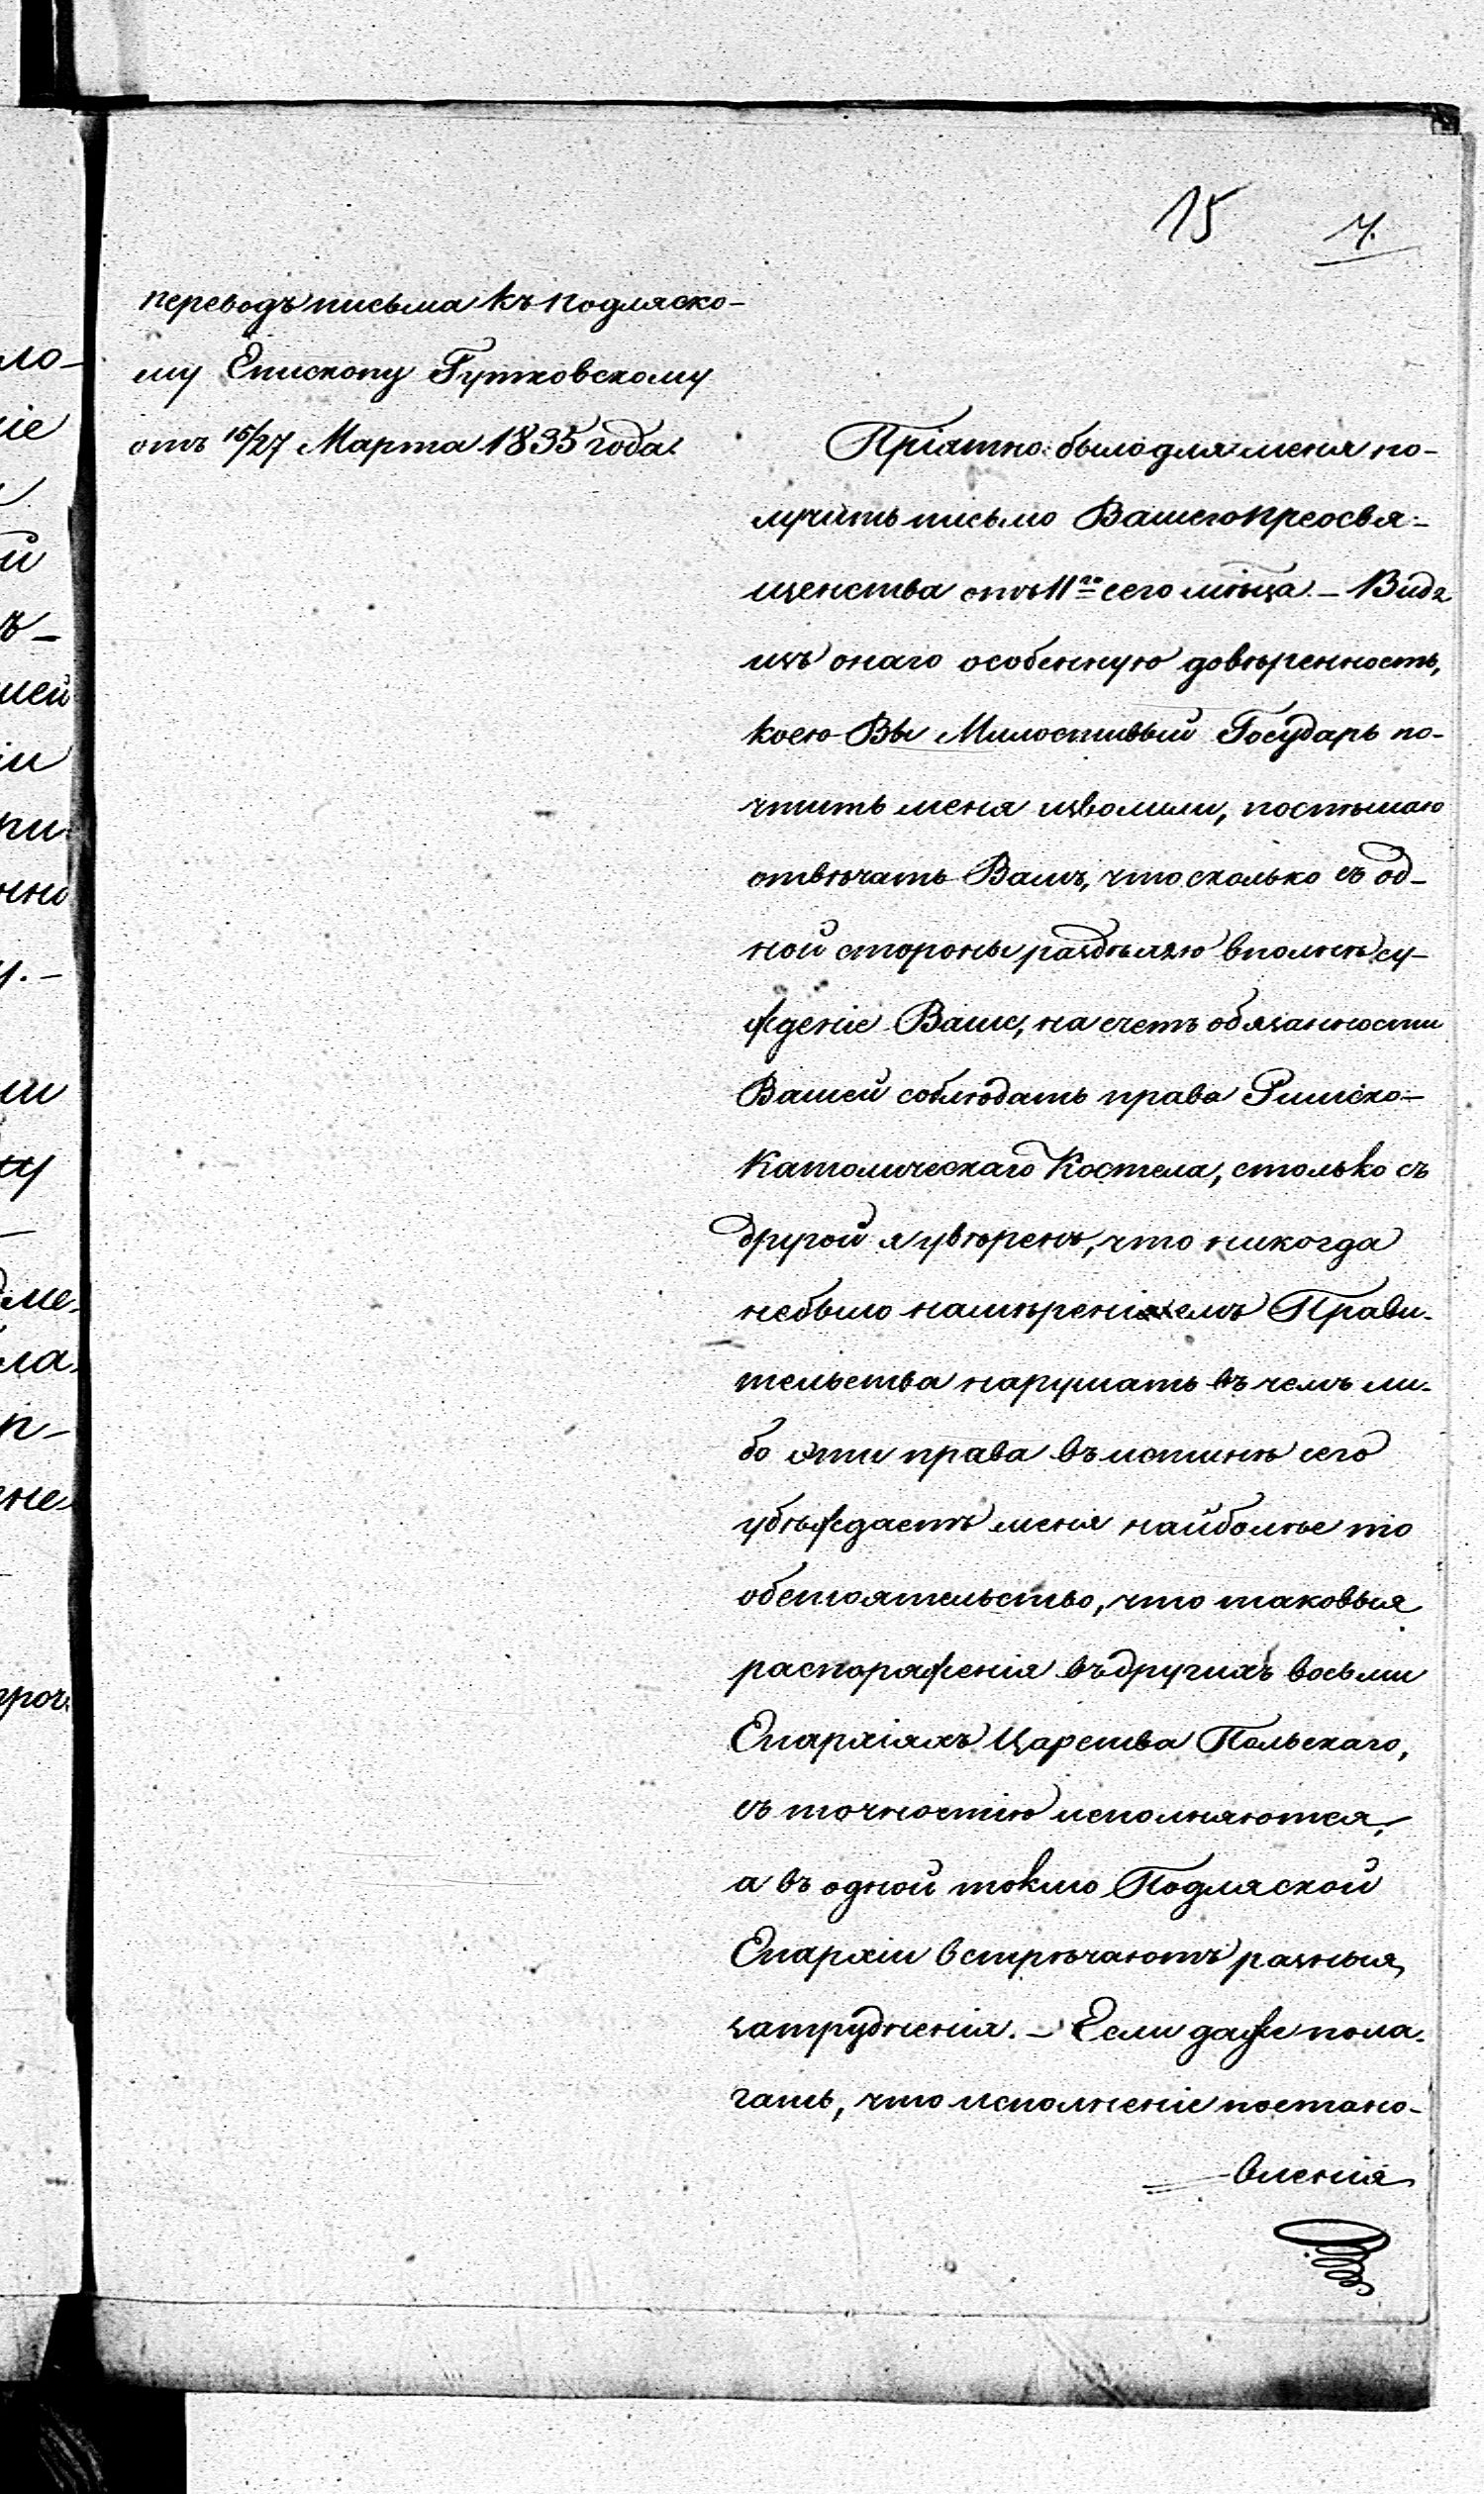 15 7.
переводъ письма къ подляско-
му Епископу Гутковскому
отъ 15/27 Марта 1835 года.
Пріятно было для меня по-
лучить письмо Вашего преосвя-
щенства отъ 11го сего мѣца. - Видя
изъ онаго особенную довѣренность,
коею Вы Милостивый Государь по-
чтить меня изволили, поспѣшаю
отвѣчать Вамъ, что сколько съ од-
ной стороны раздѣляю вполнѣ су-
жденіе Ваше, на счетъ обязанности
Вашей соблюдать права Римско-
Католическаго Костела, столько съ
другой я увѣренъ, что никогда
небыло намѣреніемъ Прави-
тельства нарушать въ чемъ ли-
бо эти права въ истинѣ сего
убѣждаетъ меня наиболѣе то
обстоятельство, что таковыя
распоряженія въ другихъ восьми
Епархіяхъ Царства Польскаго,
съ точностію исполняются,
а въ одной токмо Подляской
Епархіи встрѣчаютъ разныя
затрудненія. - Если даже пола-
гать, что исполненіе постано-
вленія